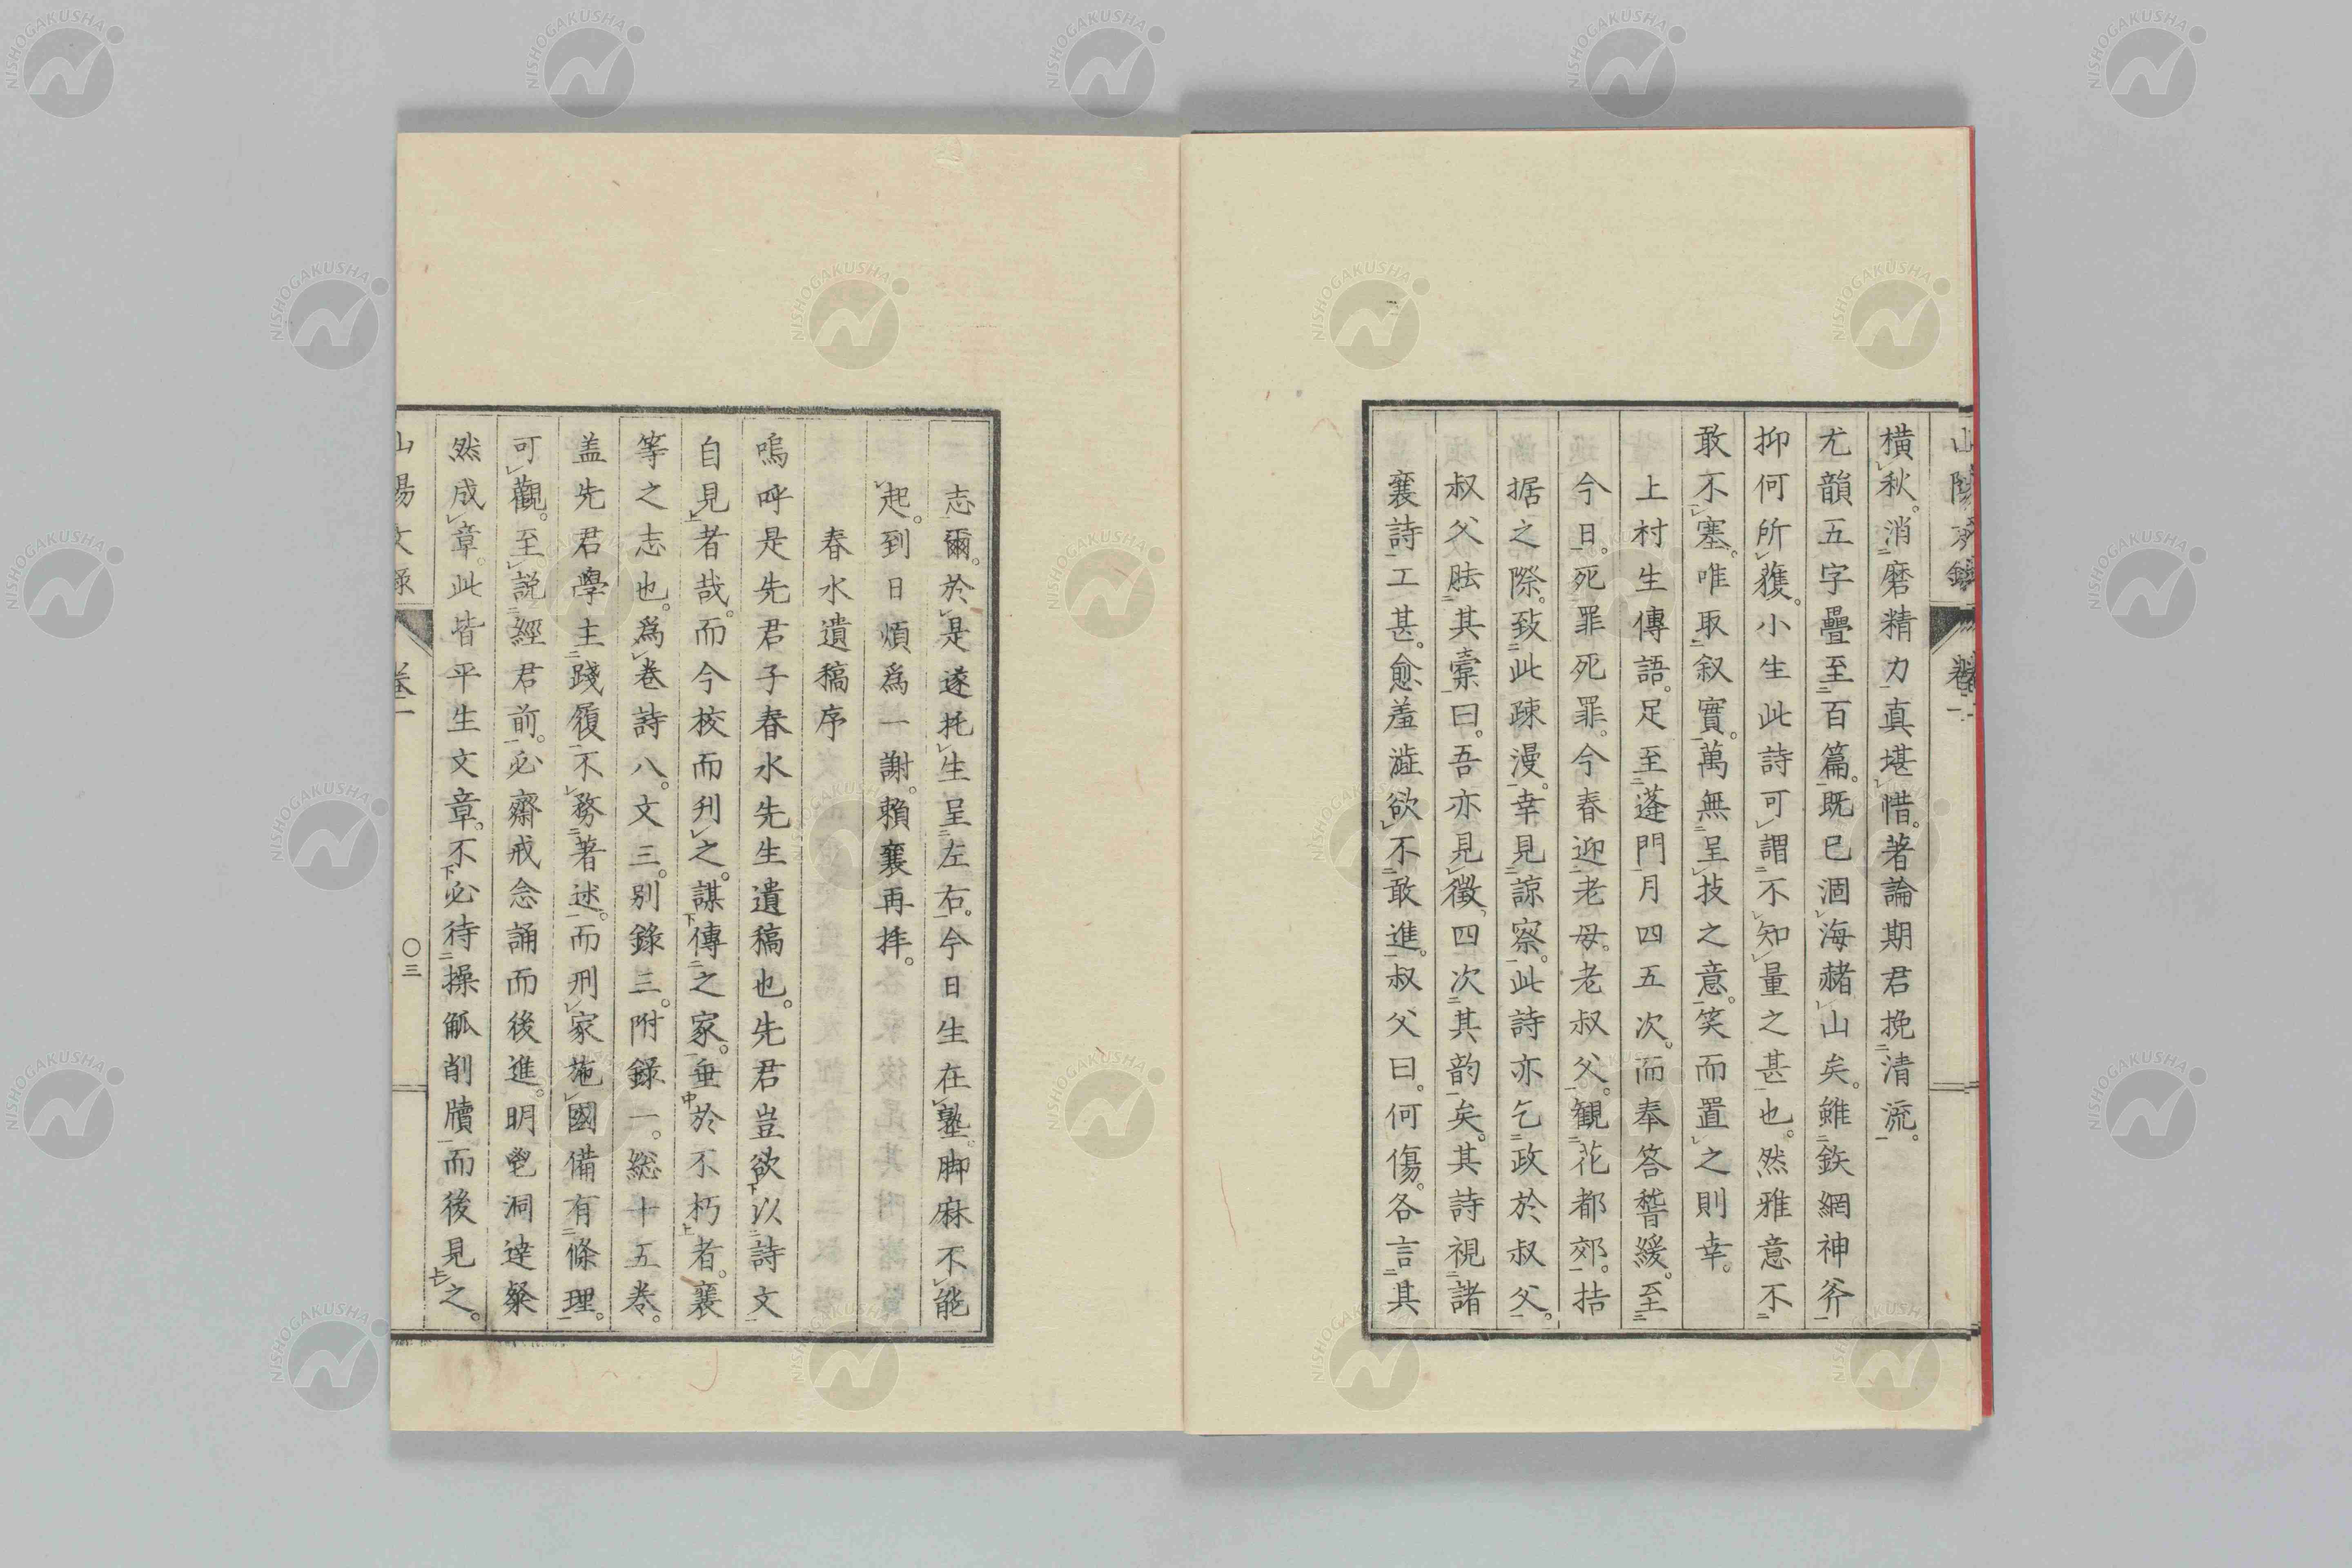 橫秋。消磨精力真堪惜。著論期君挽清流。
尤韻五字疊至百篇。既已涸海赭山矣。雖鉃網神斧
抑何所獲。小生此詩可謂不知量之甚也。然雅意不
敢不塞。唯取叙實。萬無呈技之意。笑而置之則幸。
上村生傳語。足至蓬門月四五次。而奉答稽緩。至
今日。死罪死罪。今春迎老母。老叔父。観花都郊。拮
据之際。致此疎漫。幸見諒察。此詩亦乞政於叔父。
叔父胠其橐曰。吾亦見徵、四次其韵矣。其詩視諸
襄詩工甚。愈羞澁欲不敢進。叔父曰。何傷。各言其
志爾。於是遂托生呈左右。今日生在塾。脚麻不能
起。到日煩爲一謝。賴襄再拝。
春水遺稿序
嗚呼是先君子春水先生遺稿也。先君豈欲以詩文
自見者哉。而今校而刋之。謀傳之家。垂於不朽者。襄
等之志也。爲卷詩八。文三。別錄三。附錄一。総十五卷。
盖先君學主踐履不務著述。而刑家施國備有條理。
可觀。至説經君前。必齋戒念誦而後進。明鬯洞達粲
然成章。此皆平生文章。不必待操觚削牘而後見之。
山陽文錄 卷一 〇三
NISHOGAKUSHA